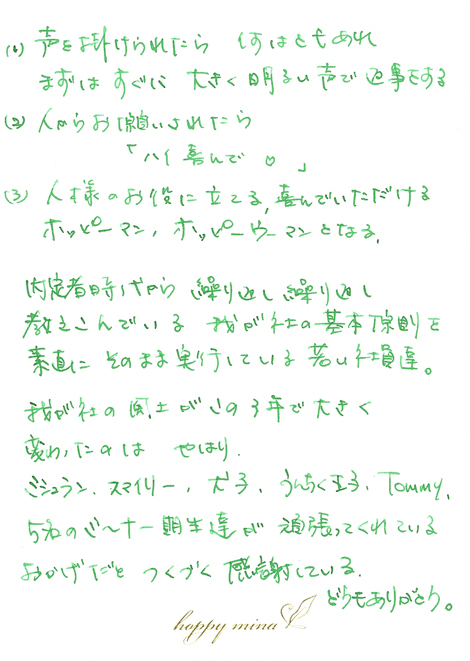 (1) 声を掛けられたら 何はともあれ
まずは すぐに 大きく明るい声で 返事をする
(2) 人からお願いされたら
「ハイ喜んで ♡ 」
(3) 人様のお役に立てる、喜んでいただける
ホッピーマン、ホッピーウーマンとなる。
内定者時代から 繰り返し 繰り返し
教えこんでいる 我が社の基本原則を
素直に そのまま実行している 若い社員達。
我が社の風土が この3年で大きく
変わったのは やはり、
ミシュラン、スマイリー、犬子、うんちく王子、Tommy、
5名の 一期生達が 頑張ってくれている
おかげだと つくづく 感謝している。
どうもありがとう。
happy mina